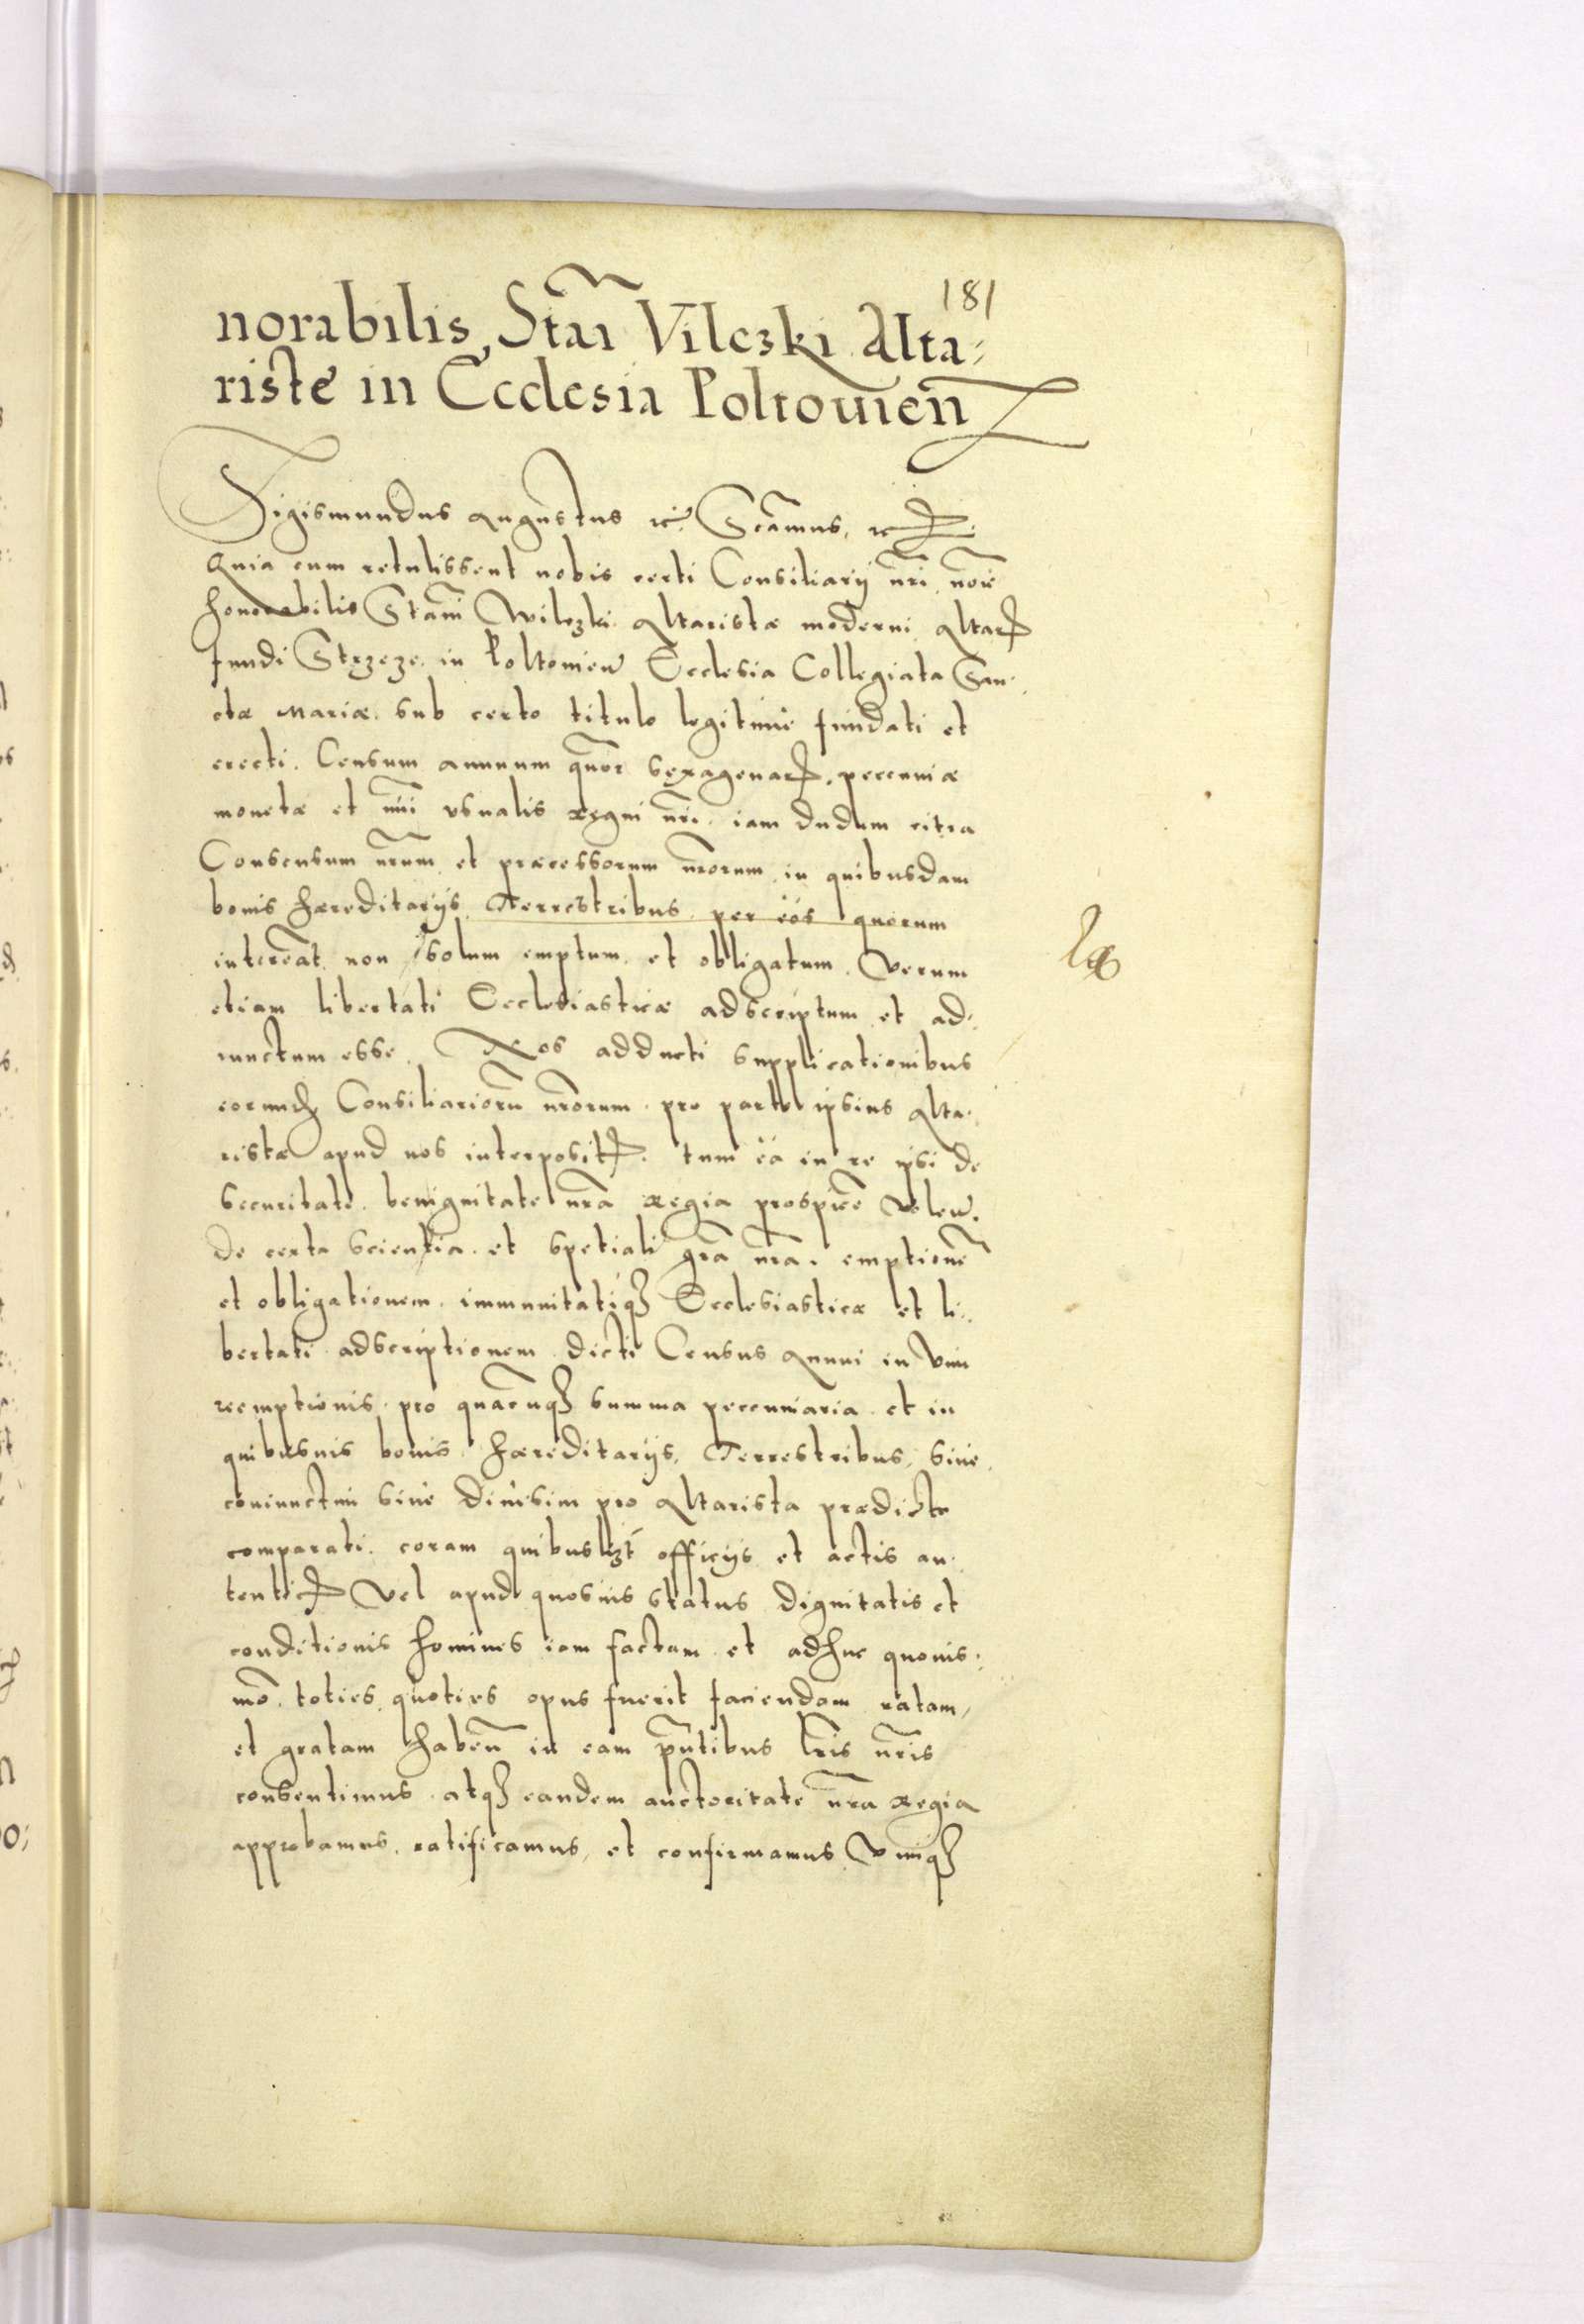 181
norabilis Stañ Vilczki Alta⸗
riste in Ecclesia Poltouien̄
Sigismundus Augustus ꝛc̄. Sc̄amus, ꝛc
Quia cum retulissent nobis certi Consiliarij nr̄i noīe
honorabilis Stanī Wilczki Altaristæ moderni Altar
fundi Strzeze in Poltouien̄ Ecclesia Collegiata San⸗
ctæ Mariæ sub certo titulo legitime fundati et
erecti. Censum annuum quor̄ sexagenar. peccuniæ
monetæ et nūi vsualis Regni nr̄i iam dudum citra
Consensum nr̄um et præcessorum nr̄orum in quibusdam
bonis hæreditarijs Terrestribus per eos quorum
intereat non solum emptum et obligatum verum
etiam libertati Ecclesiasticæ adscriptum et ad⸗
iunctum esse. Nos adducti supplicationibus
eorund Consiliariorū nr̄orum pro parte ipsius Alta⸗
ristæ apud nos interposit. tum ea in re ipsi de
securitate benignitate nr̄a Regia prospicē volen.
de certa scientia et spetiali gr̄a nr̄a. emptionē
et obligationem immunitatiq Ecclesiasticæ et li⸗
bertati adscriptionem dicti Census Annui in vim
reemptionis pro quacūq summa peccuniaria et in
quibusuis bonis hæreditarijs, Terrestribus, siue
coniunctim siue diuisim pro Altarista prædicto
comparati. coram quibuslzt officijs et actis au⸗
tentic vel apud quosuis status dignitatis et
conditionis homines iam factam et adhuc quouis⸗
mō toties quoties opus fuerit faciendam ratam,
et gratam haben̄ in eam pn̄tibus lr̄is nr̄is
consentimus atq eandem auctoritate nr̄a Regia
approbamus, ratificamus, et confirmamus vimq